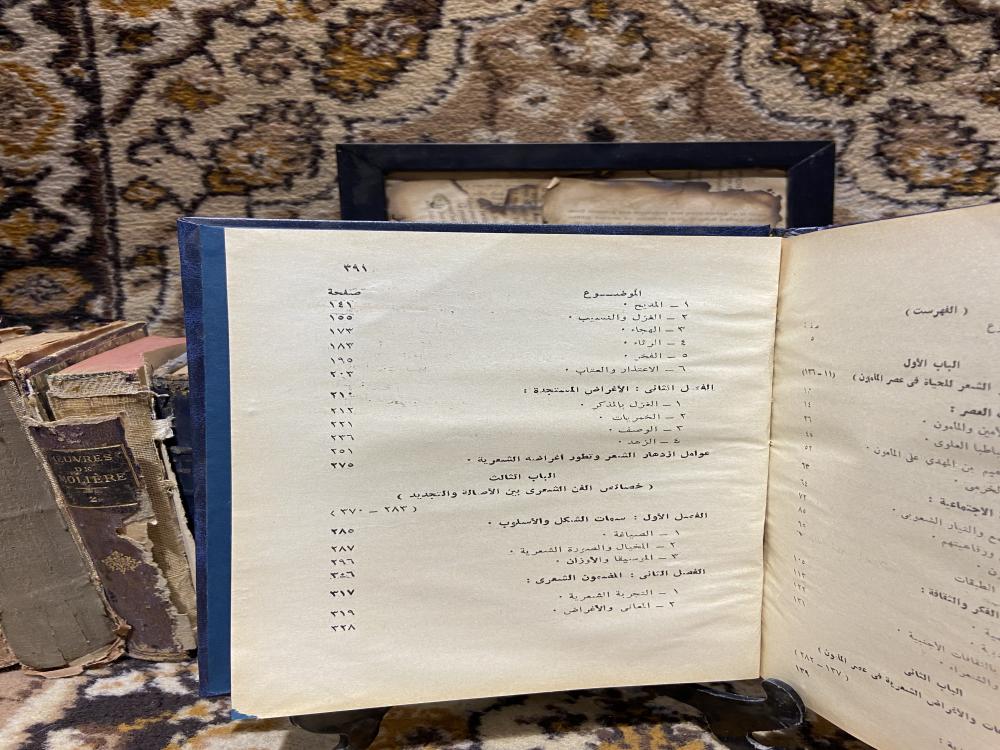 ٣٩١
الموضـــوع صفحة
١ – المديح . ١٤١
٢ – الغزل والنسيب . ١٥٥
٣ – الهجاء . ١٧٣
٤ – الرثاء . ١٨٣
٥ – الفخر . ١٩٥
٦ – الاعتذار والعتاب . ٢٠٣
الفصل الثانى : الأغراض المستجدة : ٢١٠
١ – الغزل بالمذكر . ٢١٢
٢ – الخمريات . ٢٢١
٣ – الوصف . ٢٣٦
٤ – الزهد . ٢٥١
عوامل ازدهار الشعر وتطور اغراضه الشعرية . ٢٧٥
الباب الثالث
( خصائص الفن الشعرى بين الأصالة والتجديد )
( ٢٨٣ – ٣٧٠ )
الفصل الأول : سمات الشكل والأسلوب . ٢٨٥
١ – الصياغة . ٢٨٧
٢ – الخيال والصورة الشعرية . ٢٩٦
٣ – الموسيقا والأوزان .
الفصل الثانى : المضمون الشعرى : ٣١٧
١ – التجربة الشعرية . ٣١٩
٢ – المعانى والأغراض . ٣٢٨
( الفهرست )
٥
الباب الأول
الشعر للحياة فى عصر المأمون ) (١١ – ١٣٦)
العصر :
الأمين والمأمون .
طباطبا العلوى .
بن المهدى على المأمون .
الاجتماعية :
والتيار الشعوبى .
ورفاهيتهم .
الطبقات
الفكر والثقافة :
والثقافات الأجنبية .
والشعراء .
الباب الثانى
والأغراض الشعرية فى عصر المأمون )
( ١٣٧ – ٢٨٢ )
١٣٩
ŒUVRES
DE
MOLIÈRE
2